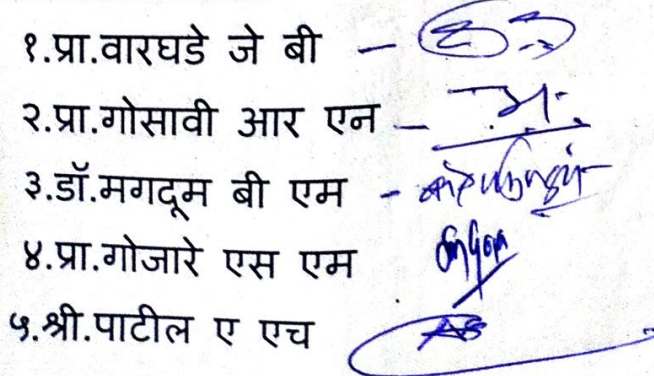 १.प्रा.वारघडे जे बी –
२.प्रा.गोसावी आर एन –
३.डॉ.मगदूम बी एम -
४.प्रा.गोजारे एस एम
५.श्री.पाटील ए एच